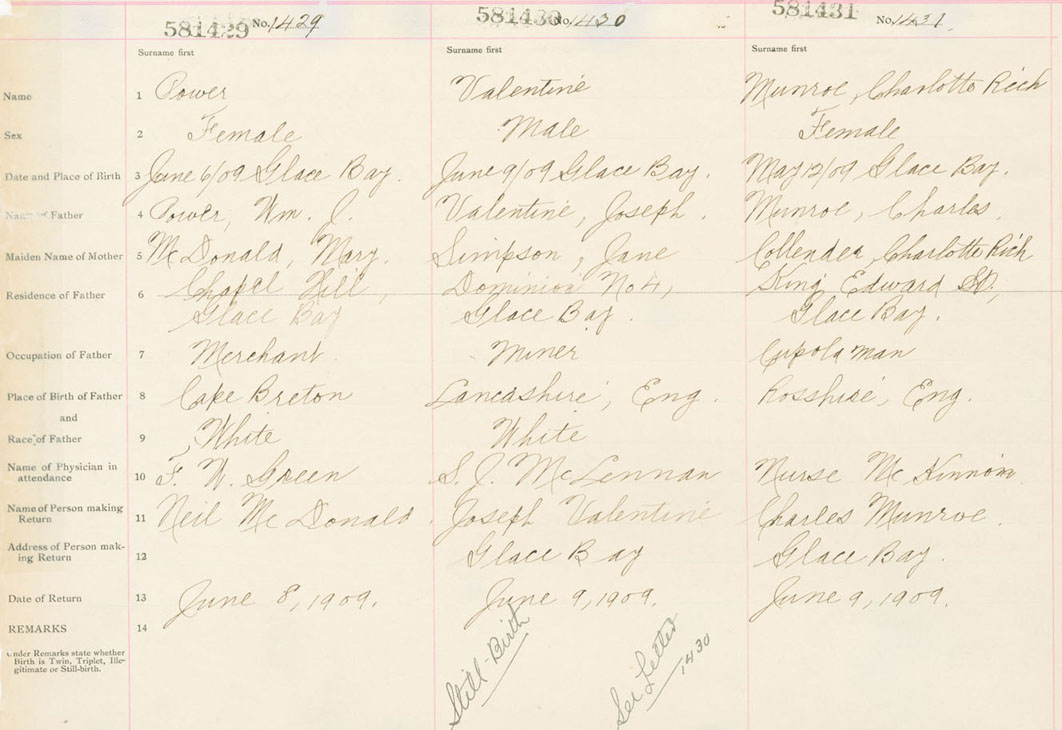 581429 No. 1429 581430 No. 1430 581431 No. 1431
Surname first Surname first Surname first
Name 1 Power Valentine Munroe, Charlotte Rich
Sex 2 Female Male Female
Date and Place of Birth 3 June 6/09 Glace Bay. June 9/09 Glace Bay. May 12/09 Glace Bay.
Name of Father 4 Power, Wm. J. Valentine, Joseph. Munroe, Charles.
Maiden Name of Mother 5 McDonald, Mary. Simpson, Jane Collender, Charlotte Rich
Residence of Father 6 Chapal Hill, Dominion No 4, King Edward St.,
Glace Bay Glace Bay. Glace Bay.
Occupation of Father 7 Merchant. Miner Cupola man
Place of Birth of Father 8 Cape Breton Lancashire, Eng. Rosshire, Eng.
and
Race of Father 9 White White
Name of Physician in
attendance 10 F. W. Green S. J. McLennan Nurse McKinnon
Name of Person making
Return 11 Neil McDonald. Joseph Valentine Charles Munroe.
Address of Person mak-
ing Return 12 Glace Bay Glace Bay.
Date of Return 13 June 8, 1909. June 9, 1909. June 9, 1909.
REMARKS 14
Under Remarks state whether
Birth is Twin, Triplet, Ille-
gitimate or Still-birth.
Still-Birth
See Letter
1430